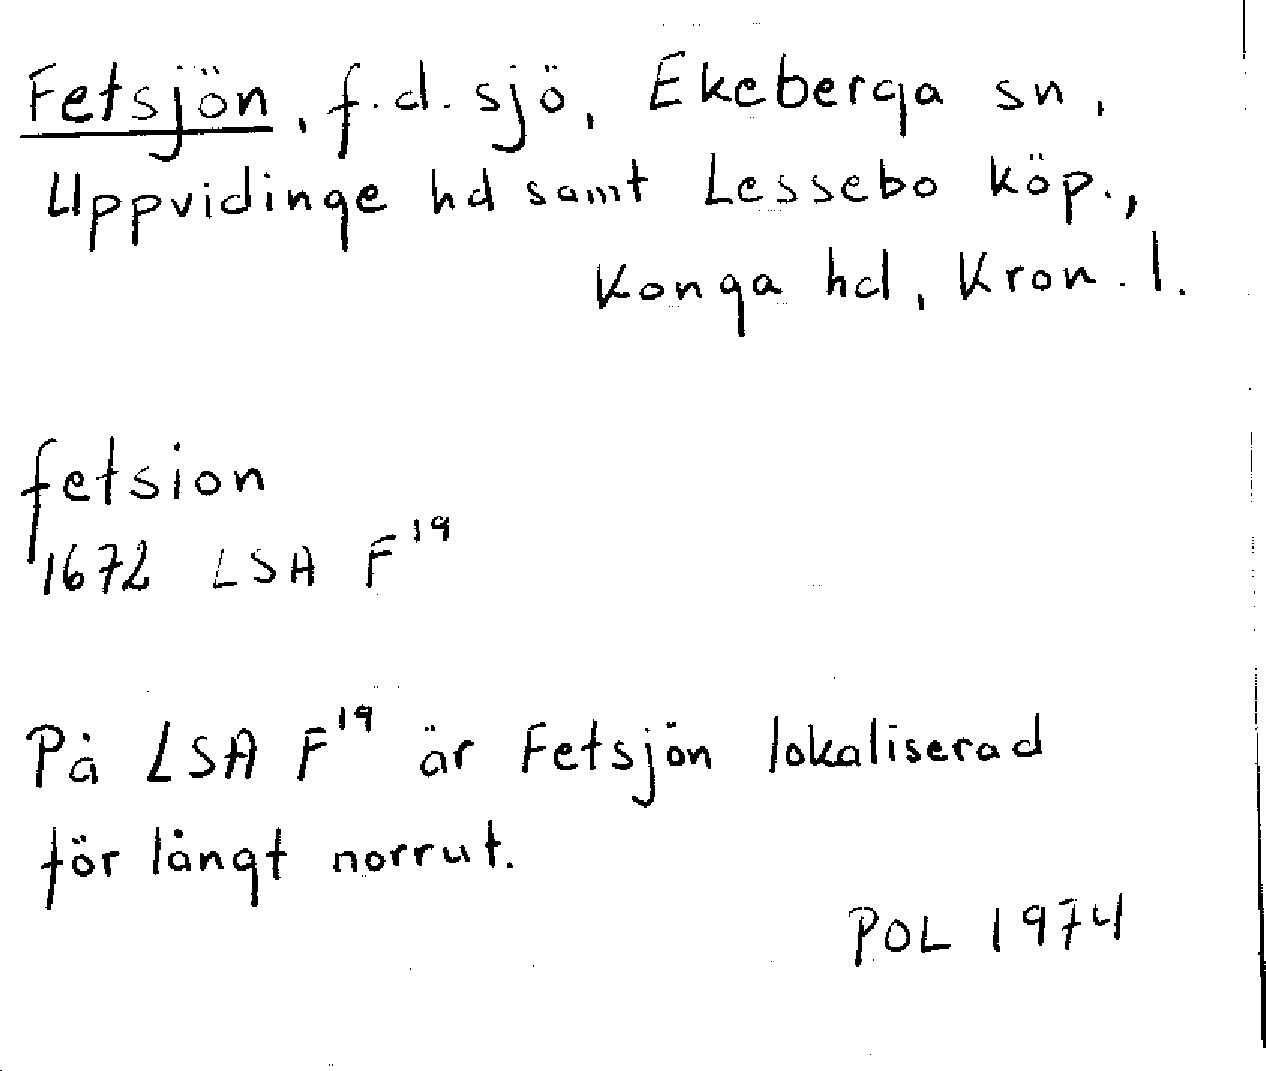 Fetsjön, f.d. sjö, Ekeberga sn,
Uppvidinge hd samt Lessebo köp.,
Konga hd, Kron. l.
fetsion
1672 LSA F¹⁹
På LSA F¹⁹ är Fetsjön lokaliserad
för långt norrut.
POL 1974